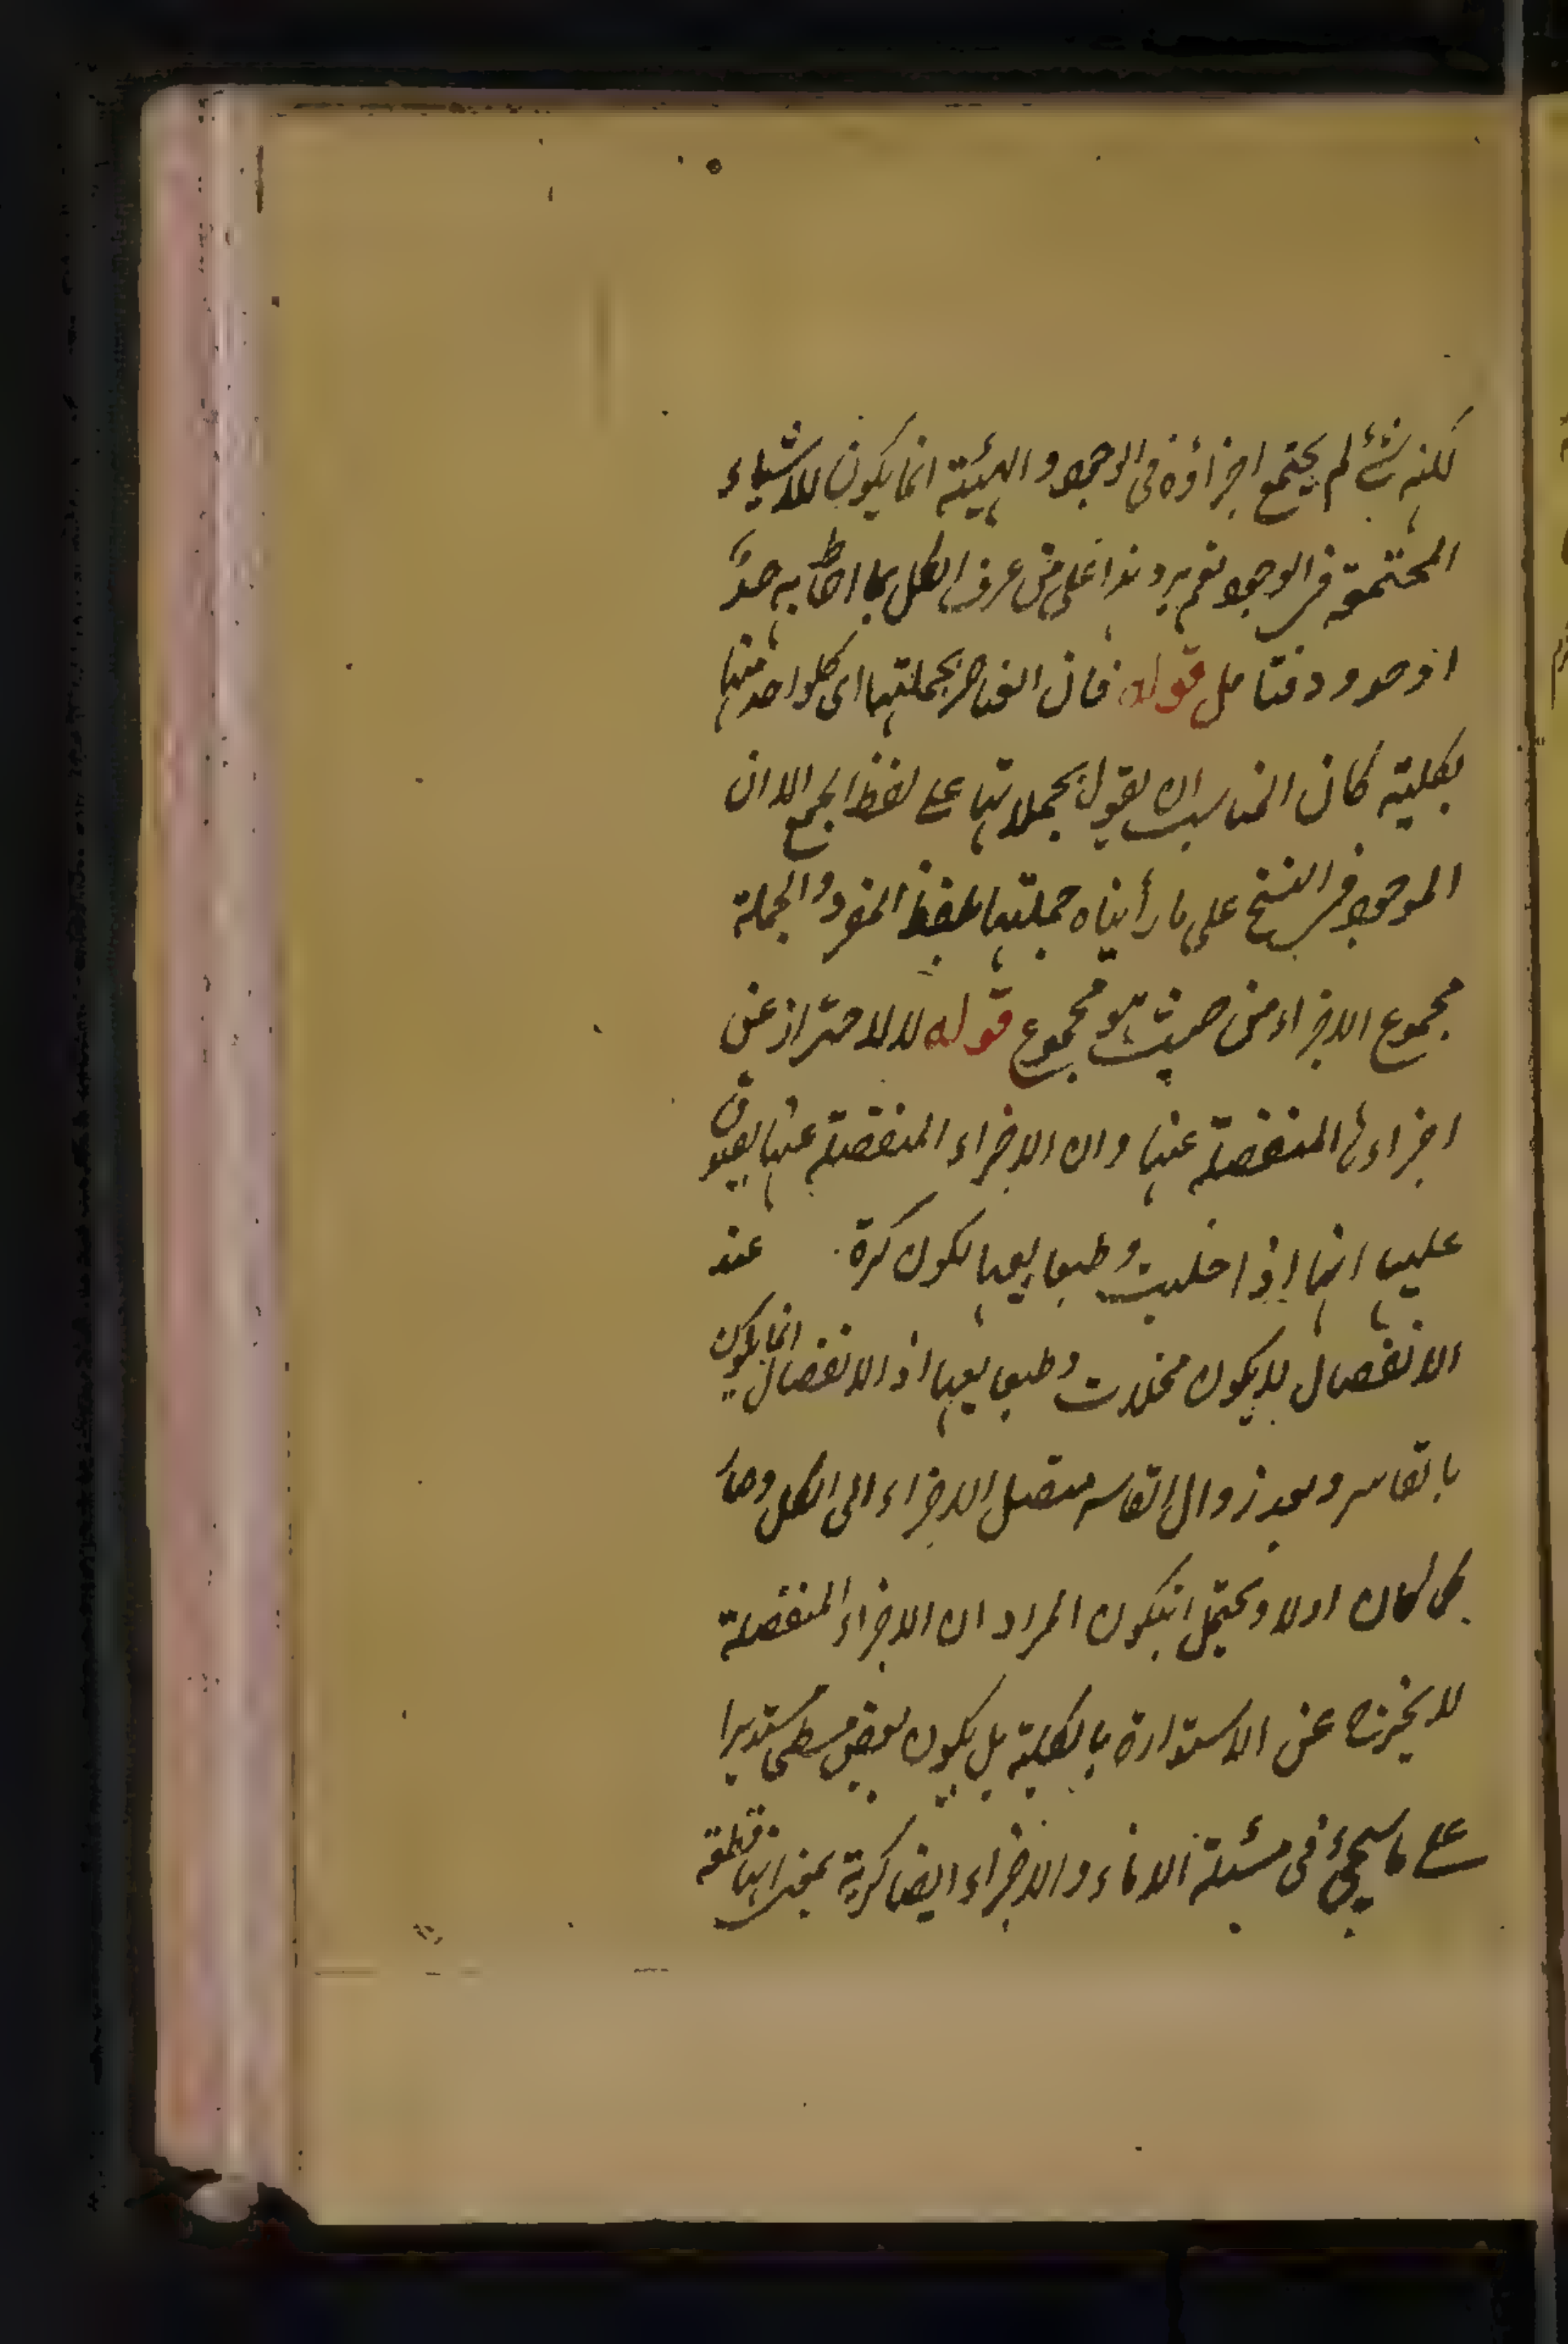 لكنه شئ لم يجتمع اجزاؤه فى الوجود والهيئة انما يكون للاشياء
المجتمعة فى الوجود نعم يرد هذا على من عرف الكل بما احاط به حد
او حدود فتامل قوله فان العناصر بجملتها اى كلواحد منها
بكليته كان المناسب ان يقول بجملاتها على لفظ الجمع الا ان
الموجود فى النسخ على ما رأيناه جملتها بلفظ المفرد والجملة
مجموع الاجزاء من حيث هو مجموع قوله لا للاحتراز عن
اجزاءها المنفصلة عنها وان الاجزاء المنفصلة عنها يصدق
عليها انها اذا خليت وطبايعها يكون كرة عند
الانفصال لا يكون مخلاة وطبايعها اذ الانفصال انما يكون
بالقاسر وبعد زوال القاسر يتصل الاجزاء الى الكل وصار
كما كان اولا ويحتمل انيكون المراد ان الاجزاء المنفصلة
لا يخرج عن الاستدارة بالكلية بل يكون بعض سطحه مستديرا
على ما سيجئ فى مسئلة الاناء والاجزاء ايضا كرية بمعنى انها قطعة